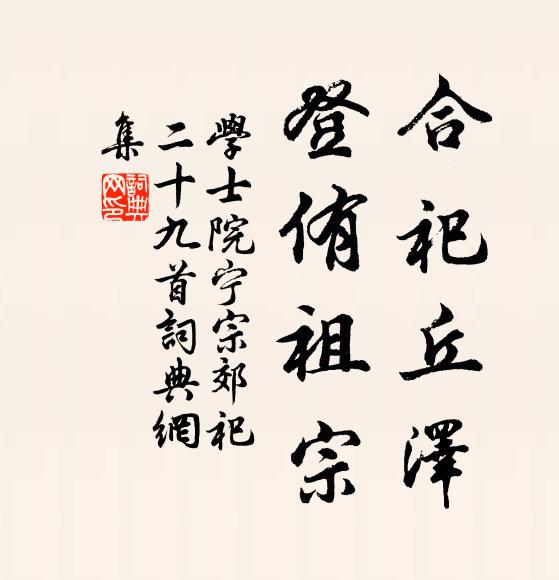 合祀丘澤
登侑祖宗
學士院宁宗郊祀
二十九首詞典網
集
詞典
网印